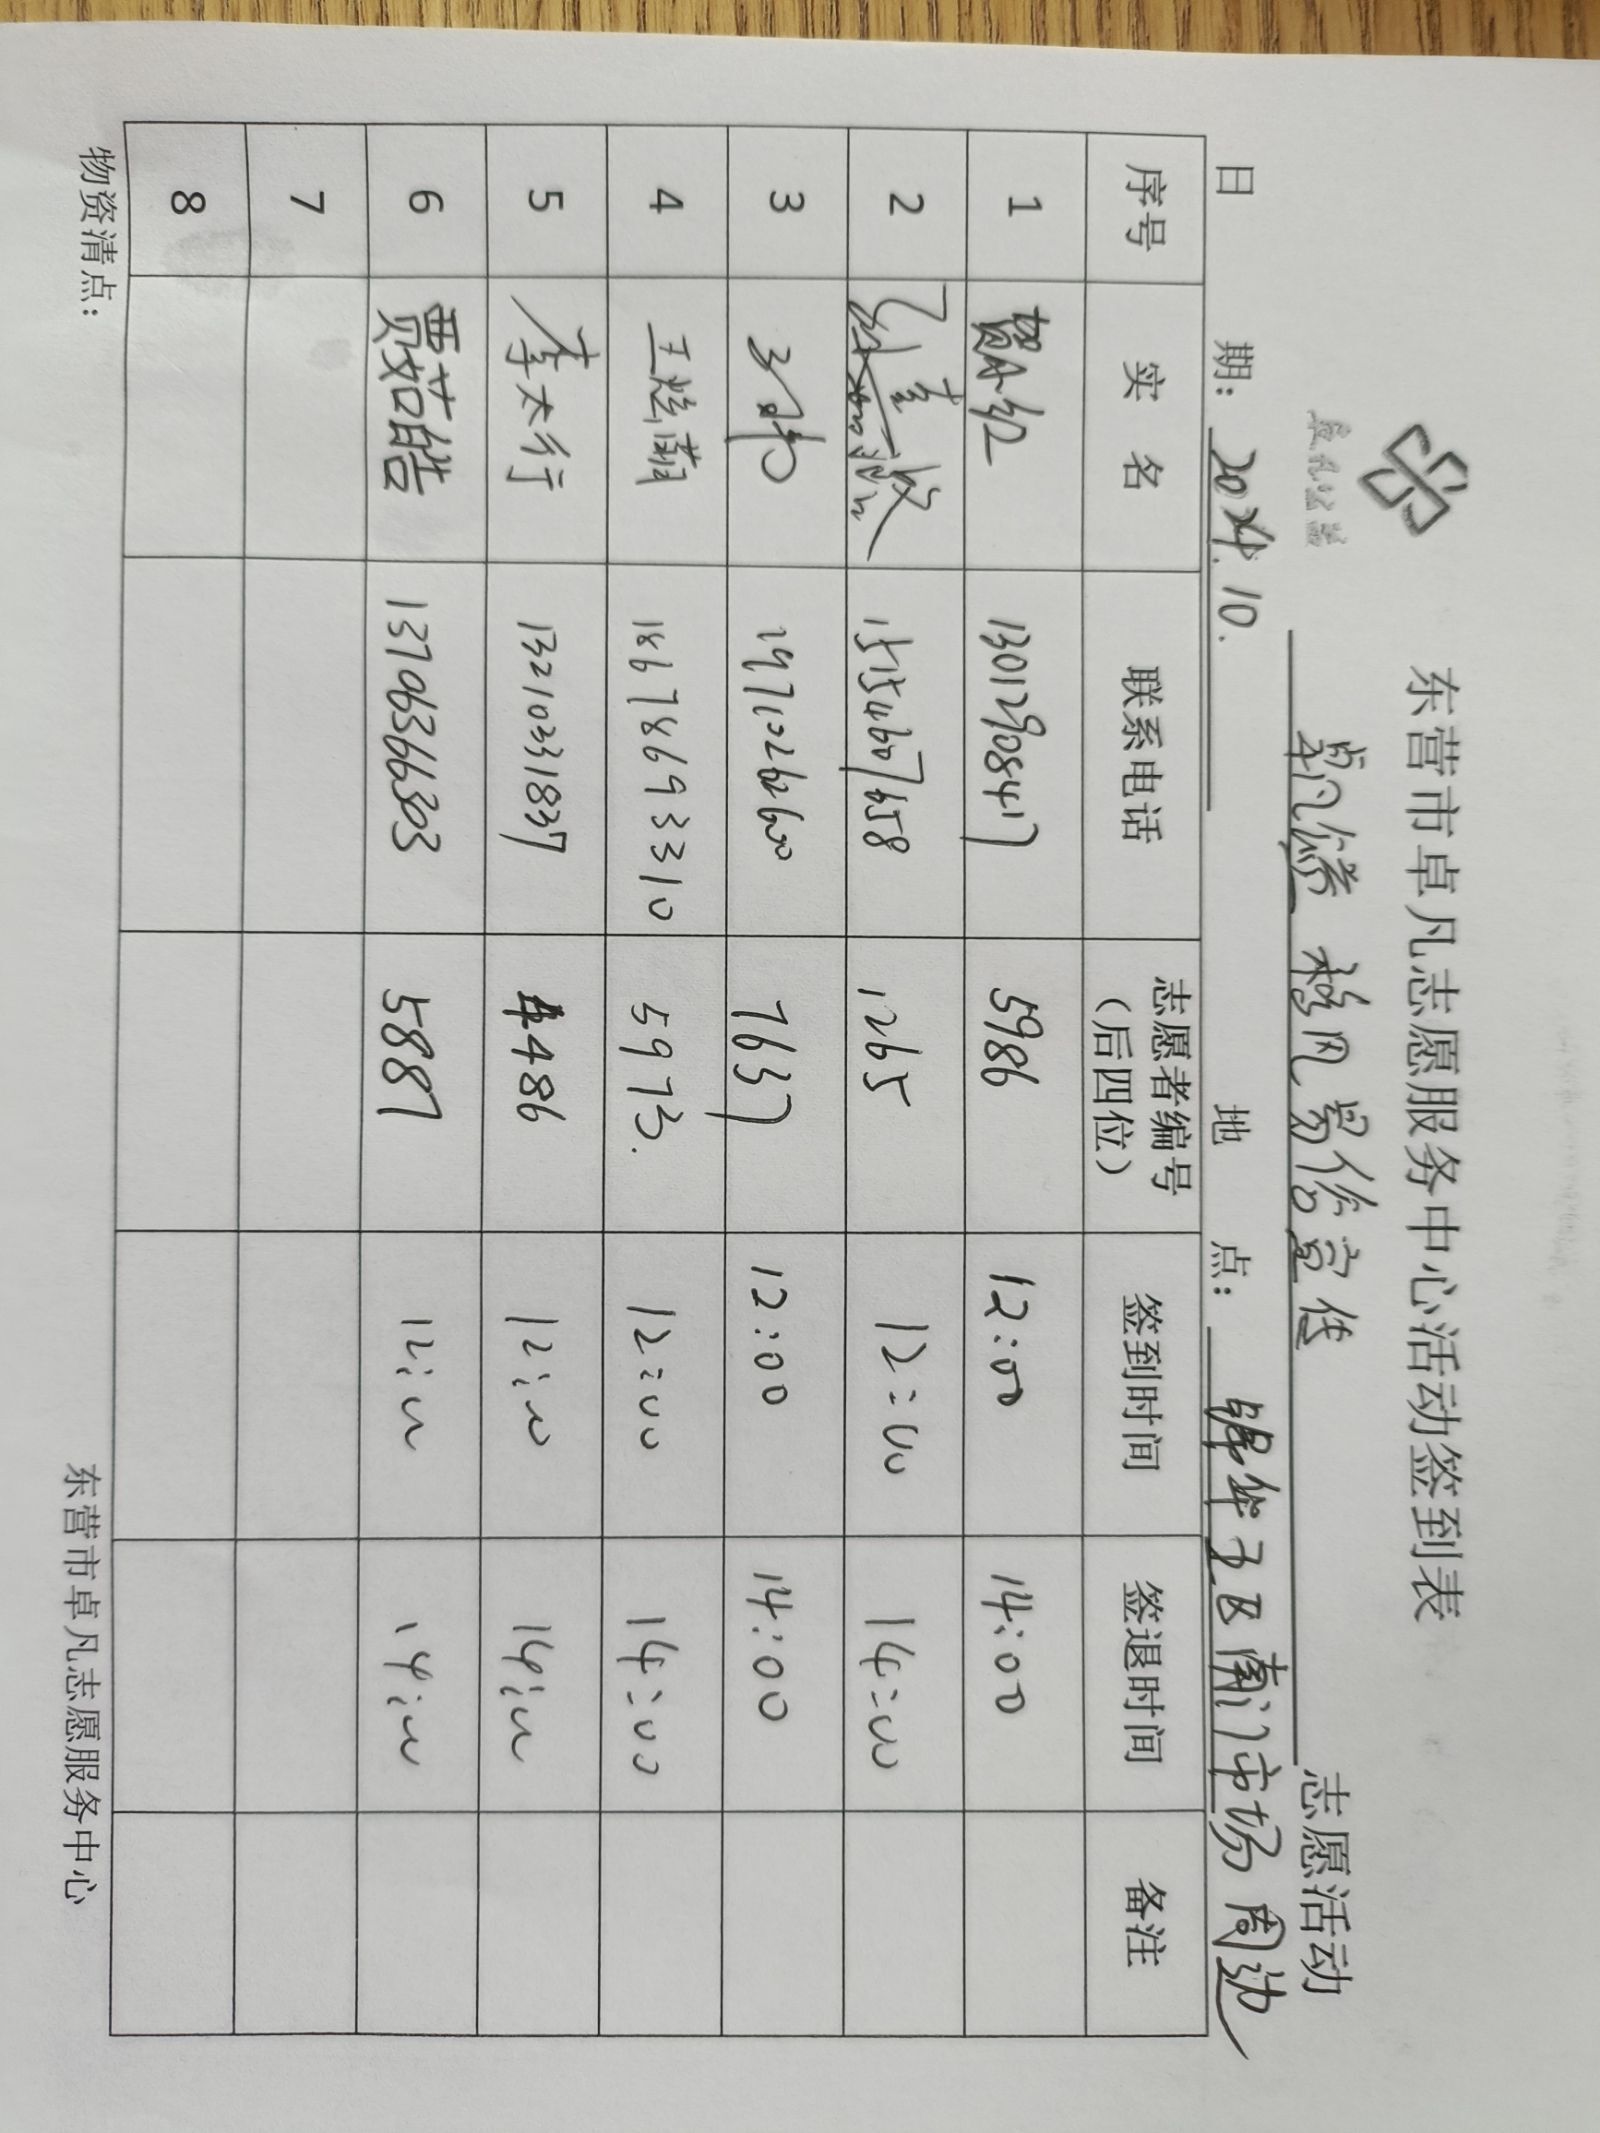 东营市卓凡志愿服务中心活动签到表
卓凡公益
移风易俗宣传 志愿活动
日 期: 10. 地 点: 锦华五区南门市场周边
序号 实 名 联系电话 志愿者编号（后四位） 签到时间 签退时间 备注
1 13012908417 5986 12:00 14:00
2 1265 12:00 14:00
3 7637 12:00 14:00
4 18678693310 5973. 12:00 14:00
5 李太行 13210331837 4486 12:00 14:00
6 贾茹皓 13706366303 5887 12:00 14:00
7
8
物资清点:
东营市卓凡志愿服务中心